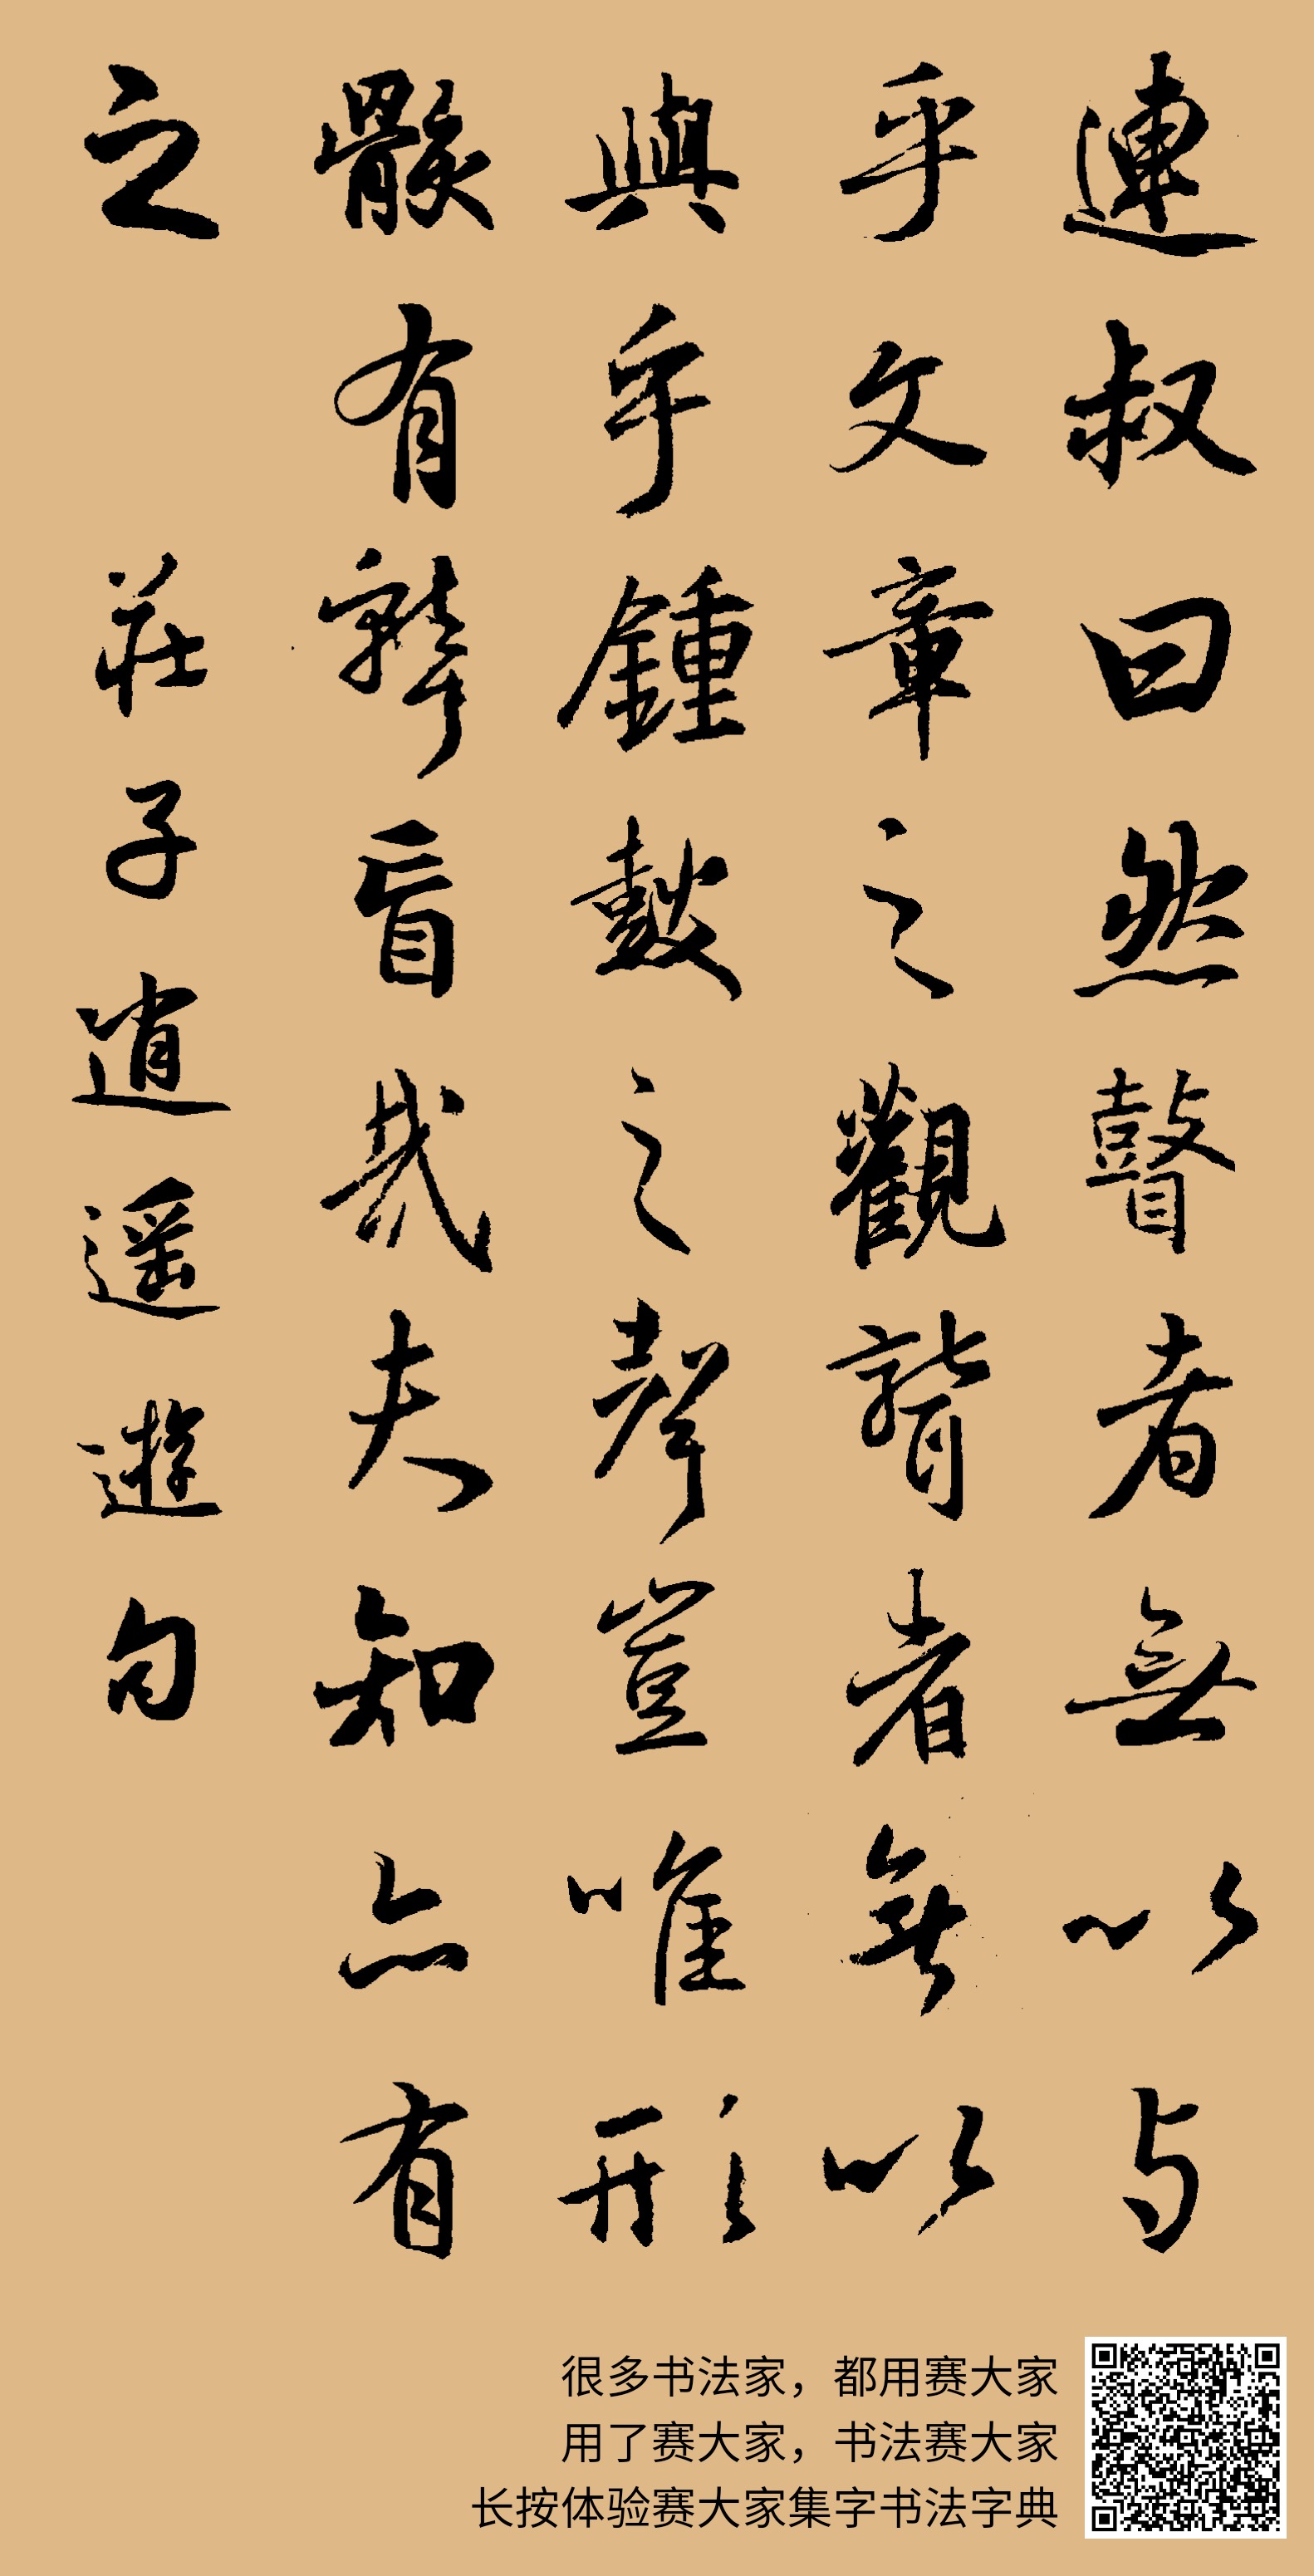 連叔曰然瞽者無以与
乎文章之觀聾者無以
與乎鍾鼓之聲豈唯形
骸有聾盲哉夫知亦有
之
莊子逍遥遊句
很多书法家，都用赛大家
用了赛大家，书法赛大家
长按体验赛大家集字书法字典